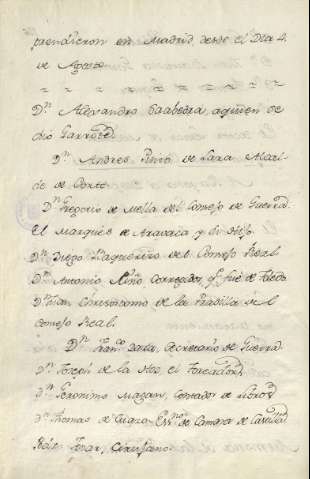 prendieron en Madrid desde el Dia 4.
de Agosto
= = = = = = = =
Dn. Alexandro Saabedra, aquien se
dio Garrote
Dn. Andres Pinto de Lara Alcal-
de de Corte
Dn. Gregorio de Mella del Consejo de Guerra
El Marques de Aravaca y su Hijo
Dn. Diego Baquerizo del Consejo Real
Dn. Antonio Niño Corregidor q. fue de Toledo
Dn. Juan Chrisostomo de la Pradilla del
Consejo Real.
Dn. Franco. Daza, Secretario de Guerra
Dn. Joseph de la Hoz, el Toreador
Dn. Geronimo Mazan, Contador de
Dn. Thomas de Esno. de Camara de Castilla
Cirujano